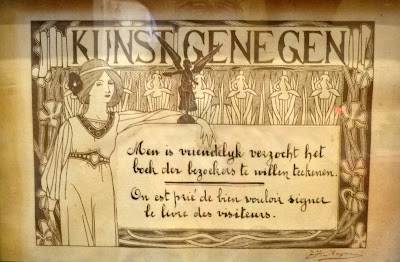 KUNST GENEGEN
Men is vriendelyk verzocht het
boek der bezoekers te willen teekenen.
On est prié de bien vouloir signer
le livre des visiteurs.